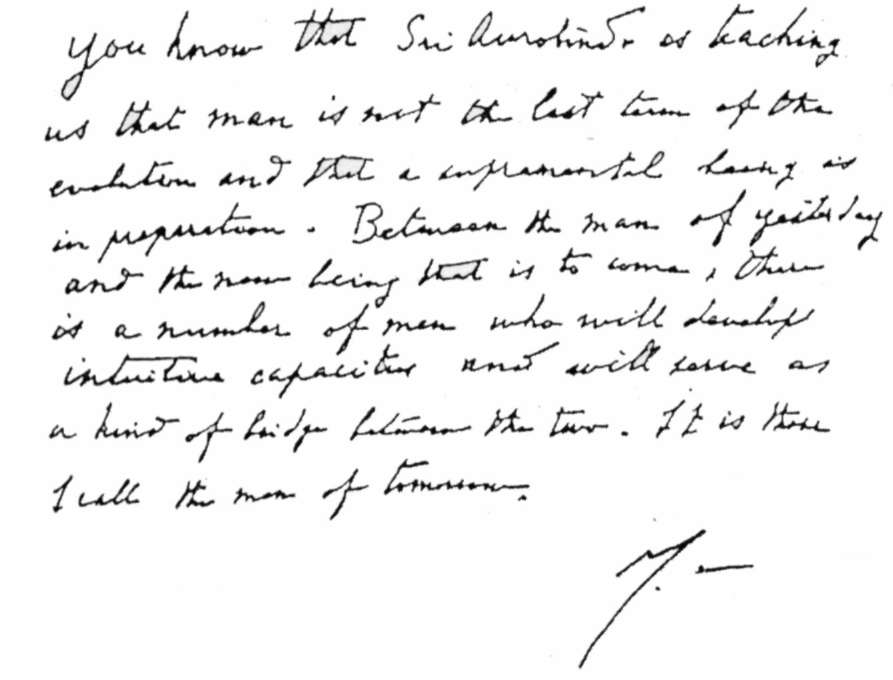 you know that Sri Aurobindo is teaching
us that man is not the last term of the
evolution and that a supramental being is
in preparation. Between the man of yesterday
and the new being that is to come, there
is a number of men who will develop
intuitive capacities and will serve as
a kind of bridge between the two. It is those
I call the men of tomorrow.